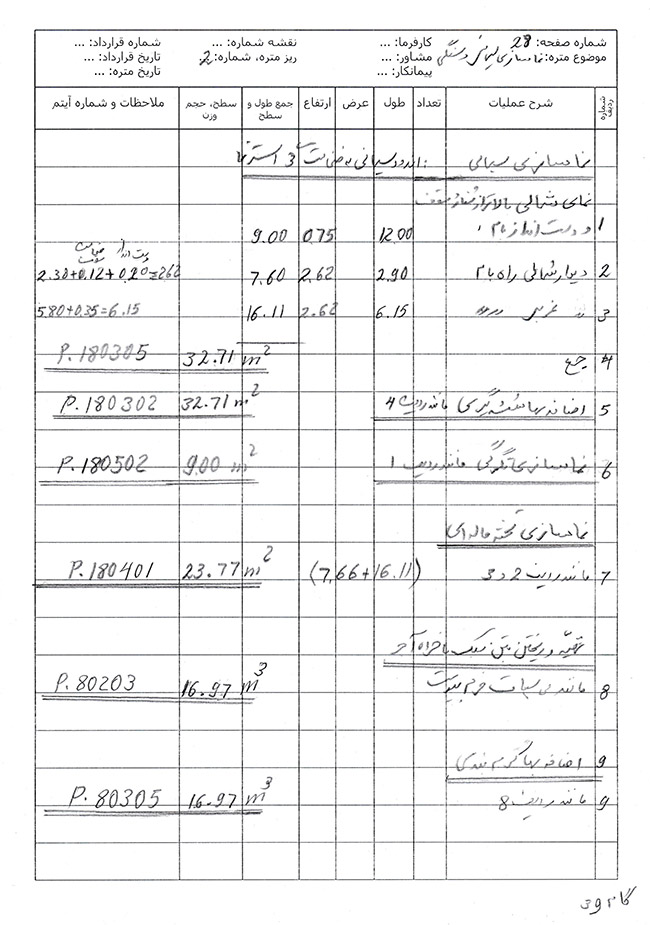 شماره صفحه: 28 کارفرما: ... نقشه شماره: ... شماره قرارداد: ...
موضوع متره: نماسازی سیمانی و سنگی مشاور: ... ریز متره، شماره: 2 تاریخ قرارداد: ...
پیمانکار: ... تاریخ متره: ...
شماره ردیف شرح عملیات تعداد طول عرض ارتفاع جمع طول و سطح سطح، حجم وزن ملاحظات و شماره آیتم
نماسازی سیمانی : اندود سیمانی به ضخامت 3 سانتیمتر
نمای شمالی بالاتر از
1 و دست انداز بام 12.00 0.75 9.00
2 دیوار شمالی راه بام 2.90 2.62 7.60 2.30+0.12+0.20=2.62
3 غربی 6.15 2.62 16.11 5.80+0.35=6.15
4 جمع 32.71 m² P.180305
5 اضافه بها مانند ردیف 4 32.71 m² P.180302
6 نماسازی مانند ردیف 1 9.00 m² P.180502
نماسازی تخته ماله‌ای
7 مانند ردیف 2 و 3 (7.66+16.11) 23.77 m² P.180401
تهیه و ریختن بتن سبک با خرده آجر
8 مانند 16.97 m³ P.80203
9 اضافه بها کرم بندی
9 مانند ردیف 8 16.97 m³ P.80305
39